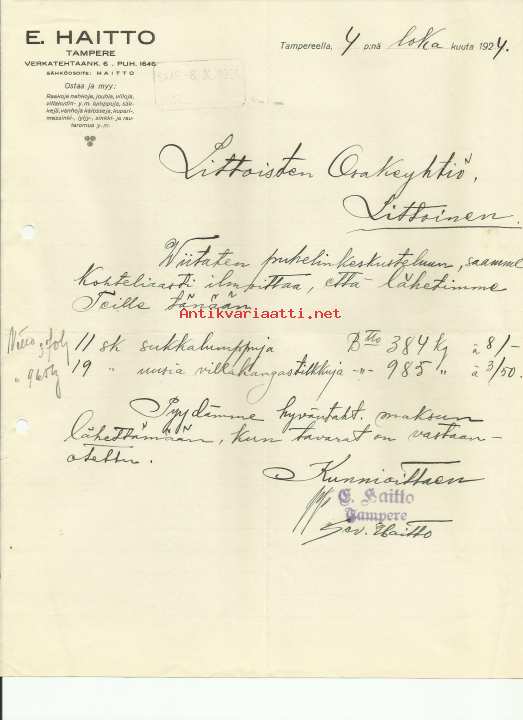 E. HAITTO
TAMPERE
VERKATEHTAANK. 6 . PUH. 1646
SÄHKÖOSOITE: HAITTO
Ostaa ja myy:
Raakoja nahkoja, jouhia, villoja,
villakudin- y. m. lumppuja, säk-
kejä, vanhoja kalosseja, kupari-
messinki-, lyijy-, sinkki- ja rau-
taromua y. m.
Tampereella, 4 p:nä loka kuuta 1924.
Littoisten Osakeyhtiö,
Littoinen.
Wiitaten puhelinkeskusteluun, saamme
Kohteliaasti ilmoittaa, että lähetimme
Teille tänään
Antikvariaatti.net
11 sk sukkalumppuja Btto 384 kg á 8/-
19 " uusia villakangastilkkuja -"- 985 " á 3/50.
Pyydämme hyväntaht. maksun
lähettämään, kun tavarat on vastaan-
otettu.
Kunnioittaen
E. Haitto
Tampere
Haitto